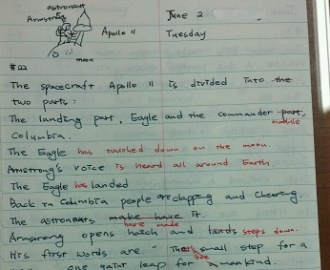 astronaut
June 2
Armstrong
Apollo 11
Tuesday
moon
#22
The spacecraft Apollo 11 is divided into the
two parts:
The landing part, Eagle and the commander part,
module
Columbia.
The Eagle has touched down on the moon.
Armstrong's voice is heard all around Earth.
The Eagle has landed
Back in Columbia people are clapping and cheering.
The astronauts make have it.
have made
Armstrong opens hatch and steps down.
His first words are - That's small step for a
one giant leap for mankind.